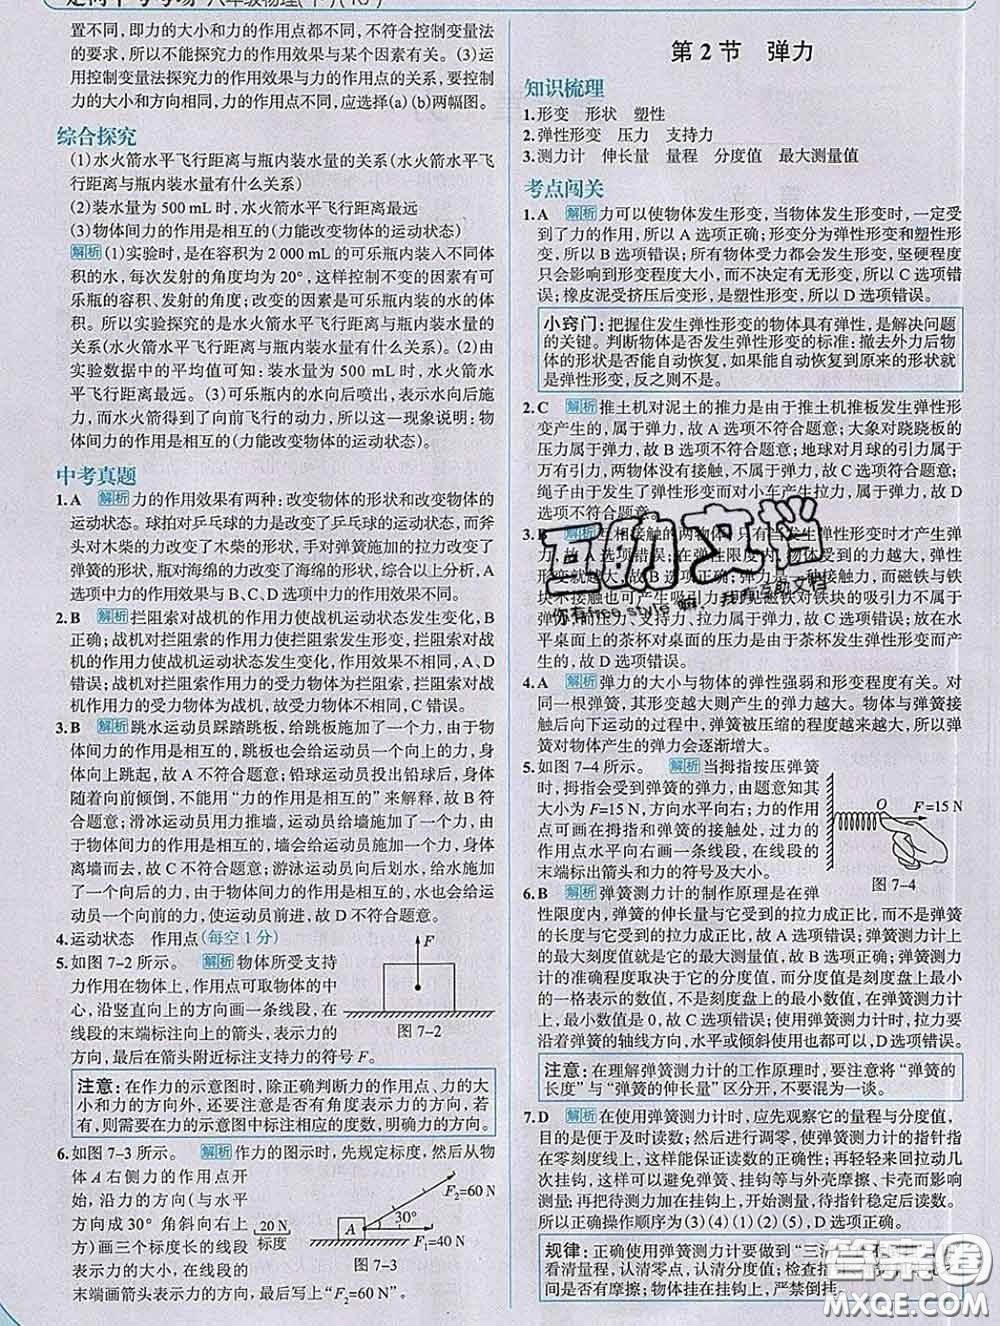 八年级物理(下)
置不同，即力的大小和力的作用点都不同，不符合控制变量法
的要求，所以不能探究力的作用效果与某个因素有关。(3)运
用控制变量法探究力的作用效果与力的作用点的关系，要控制
力的大小和方向相同，力的作用点不同，应选择(a)(b)两幅图。
综合探究
(1)水火箭水平飞行距离与瓶内装水量的关系(水火箭水平飞
行距离与瓶内装水量有什么关系)
(2)装水量为 500 mL 时，水火箭水平飞行距离最远
(3)物体间力的作用是相互的(力能改变物体的运动状态)
解析 (1)实验时，是在容积为 2 000 mL 的可乐瓶内装入不同体
积的水，每次发射的角度均为 20°，这样控制不变的因素有可
乐瓶的容积、发射的角度；改变的因素是可乐瓶内装的水的体
积。所以实验探究的是水火箭水平飞行距离与瓶内装水量的
关系(水火箭水平飞行距离与瓶内装水量有什么关系)。(2)由
实验数据中的平均值可知：装水量为 500 mL 时，水火箭水平飞
行距离最远。(3)可乐瓶内的水向后喷出，表示水向后施
力，而水火箭得到了向前飞行的动力，所以这一现象说明：物
体间力的作用是相互的(力能改变物体的运动状态)。
中考真题
1.A 解析 力的作用效果有两种：改变物体的形状和改变物体的
运动状态。球拍对乒乓球的力是改变了乒乓球的运动状态，而斧
头对木柴的力改变了木柴的形状，手对弹簧施加的拉力改变了
弹簧的形状，瓶对海绵的力改变了海绵的形状，综合以上分析，A
选项中力的作用效果与 B、C、D 选项中力的作用效果不同。
2.B 解析 拦阻索对战机的作用力使战机运动状态发生变化，B
正确；战机对拦阻索的作用力使拦阻索发生形变，拦阻索对战
机的作用力使战机运动状态发生变化，作用效果不相同，A、D
错误；战机对拦阻索作用力的受力物体为拦阻索，拦阻索对战
机的作用力的受力物体为战机，故受力物体不相同，C 错误。
3.B 解析 跳水运动员踩踏跳板，给跳板施加了一个力，由于物
体间力的作用是相互的，跳板也会给运动员一个向上的力，身
体向上跳起，故 A 不符合题意；铅球运动员投出铅球后，身体
随着向前倾倒，不能用“力的作用是相互的”来解释，故 B 符
合题意；滑冰运动员用力推墙，运动员给墙施加了一个力，由
于物体间力的作用是相互的，墙会给运动员一个力的作用，身体
离墙而去，故 C 不符合题意；游泳运动员向后划水，给水施加
了一个向后的力，由于物体间力的作用是相互的，水也会给运
动员一个向前的力，使运动员前进，故 D 不符合题意。
4.运动状态 作用点(每空 1 分)
5.如图 7-2 所示。 解析 物体所受支持
力作用在物体上，作用点可取物体的中
心，沿竖直向上的方向画一条线段，在
线段的末端标注向上的箭头，表示力的
方向，最后在箭头附近标注支持力的符号 F。
F
图 7-2
注意：在作力的示意图时，除正确判断力的作用点、力的大
小和力的方向外，还要注意是否有角度表示力的方向，若
有，则需要在力的示意图中标注相应的度数，明确力的方向。
6.如图 7-3 所示。 解析 作力的图示时，先规定标度，然后从物
体 A 右侧力的作用点开
始，沿力的方向(与水平
方向成30° 角斜向右上
方)画三个标度长的线段
表示力的大小，在线段的
末端画箭头表示力的方向，最后写上“F₂=60 N”。
20 N
标度
A
30°
F₂=60 N
F₁=40 N
图 7-3
第 2 节 弹力
知识梳理
1.形变 形状 塑性
2.弹性形变 压力 支持力
3.测力计 伸长量 量程 分度值 最大测量值
考点闯关
1.A 解析 力可以使物体发生形变，当物体发生形变时，一定受
到了力的作用，所以 A 选项正确；形变分为弹性形变和塑性形
变，所以 B 选项错误；所有物体受力都会发生形变，坚硬程度
只会影响到形变程度大小，而不决定有无形变，所以 C 选项错
误；橡皮泥受挤压后变形，是塑性形变，所以 D 选项错误。
小窍门：把握住发生弹性形变的物体具有弹性，是解决问题
的关键。判断物体是否发生弹性形变的标准：撤去外力后物
体的形状是否能自动恢复，如果能自动恢复到原来的形状就
是弹性形变，反之则不是。
2.C 解析 推土机对泥土的推力是由于推土机推板发生弹性形
变产生的，属于弹力，故 A 选项不符合题意；大象对跷跷板的
压力属于弹力，故 B 选项不符合题意；地球对月球的引力属于
万有引力，两物体没有接触，不属于弹力，故 C 选项符合题意；
绳子由于发生了弹性形变而对小车产生拉力，属于弹力，故 D
选项不符合题意。
3.B 解析 相互接触的两物体只有当发生弹性形变时才产生弹
力，故 A 选项错误；在弹性限度内，物体受到的力越大，形变
越大，故 B 选项正确；弹力是一种接触力，而磁铁与铁
块不接触也可产生吸引力，可见磁铁对铁块的吸引力不
属于弹力，压力、支持力、拉力属于弹力，故 C 选项错误；放在水
平桌面上的茶杯对桌面的压力是由于茶杯发生弹性形变而产
生的，故 D 选项错误。
4.A 解析 弹力的大小与物体的弹性强弱和形变程度有关。对
同一根弹簧，其形变越大则产生的弹力越大。物体与弹簧
接触后向下运动的过程中，弹簧被压缩的程度越来越大，所以弹
簧对物体产生的弹力会逐渐增大。
5.如图 7-4 所示。 解析 当拇指按压弹簧
时，拇指会受到弹簧的弹力，由题意知其
大小为 F=15 N，方向水平向右；力的作用
点可画在拇指和弹簧的接触处，过力的作
用点水平向右画一条线段，在线段的末端
标出箭头和力的符号及大小。
O
F=15 N
图 7-4
6.B 解析 弹簧测力计的制作原理是在弹
性限度内，弹簧的伸长量与它受到的拉力成正比，而不是弹簧
的长度与它受到的拉力成正比，故 A 选项错误；弹簧测力计上
的最大刻度值就是它的最大测量值，故 B 选项正确；弹簧测力
计的准确程度取决于它的分度值，而分度值是刻度盘上最小
的一格表示的数值，不是刻度盘上的最小数值，在弹簧测力计
上，最小数值是 0，故 C 选项错误；使用弹簧测力计时，拉力要
沿着弹簧的轴线方向，水平或倾斜使用也都可以，故 D 选项错误。
注意：在理解弹簧测力计的工作原理时，要注意将“弹簧的
长度”与“弹簧的伸长量”区分开，不要混为一谈。
7.D 解析 在使用弹簧测力计时，应先观察它的量程与分度值，
目的是便于及时读数；然后进行调零，使弹簧测力计的指针指
在零刻度线上，这样能保证读数的正确性；再轻轻来回拉动几
次挂钩，这样可以避免弹簧、挂钩等与外壳摩擦、卡壳而影响
测量；再把待测力加在挂钩上，开始测量，待指针稳定后读数。
所以正确操作顺序为(3)(4)(1)(2)(5)，D 选项正确。
规律：正确使用弹簧测力计要做到
看清量程，认清零点，认清分度值；检查指
是否有摩擦；物体挂在挂钩上，严禁倒挂。
互助文档
你有free style嘛，我有互助文档
答案卷
MXQE.COM